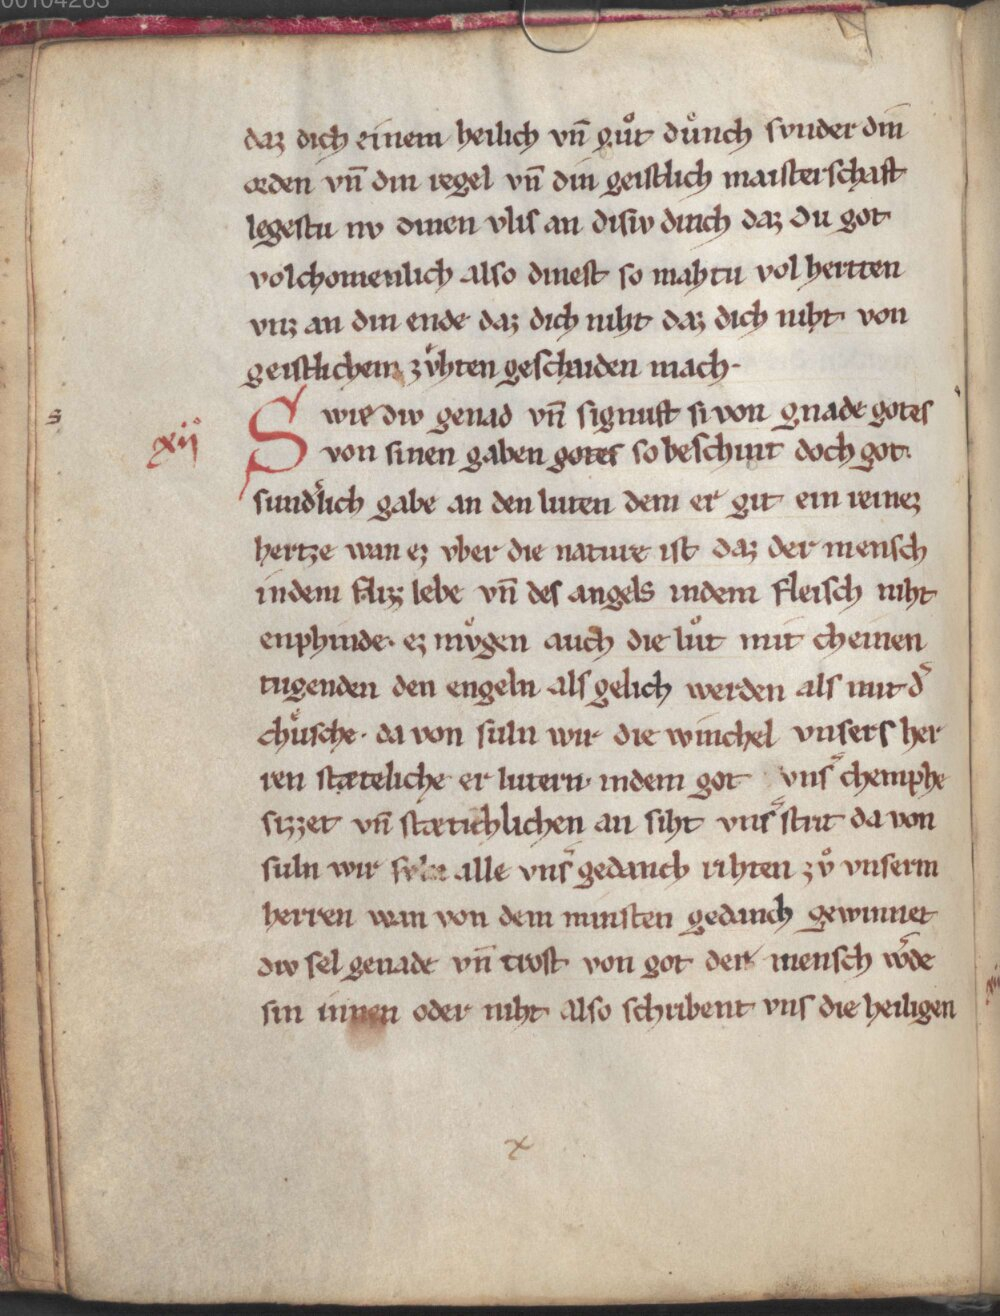 00104263
daz dich einem heilich vn̄ guͦt duͤnch svnder din
orden vn̄ din regel vn̄ din geistlich maisterschaft
legestu nv dinen vlis an disiv dinch daz du got
volchomenlich also dinest so mahtu vol hertten
vnz an din ende daz dich niht daz dich niht von
geistlichein zvͤhten geschaiden mach·
xij° Swie div genad vn̄ signuft si von gnade gotes
von sinen gaben gotes so beschint doch got
sundˀlich gabe an den luten dem er git ein reinez
hertze wan ez vber die nature ist daz der mensch
indem fliz lebe vn̄ des angels indem fleisch niht
enphinde· ez mvͦgen auch die luͦt mit cheinen
tugenden den engeln als gelich werden als mit dˀ
chuͤsche· da von suln wir die winchel vnsers her
ren stæteliche er lutern· indem got vnsˀ chemphe
sizzet vn̄ stætichlichen an siht vnsˀ strit da von
suln wir alle vnsˀ gedanch rihten zvͦ vnserm
herren wan von dem minsten gedanch gewinnet
div sel genade vn̄ trost von got der mensch wˀde
sin innen oder niht also schribent vns die heiligen
x